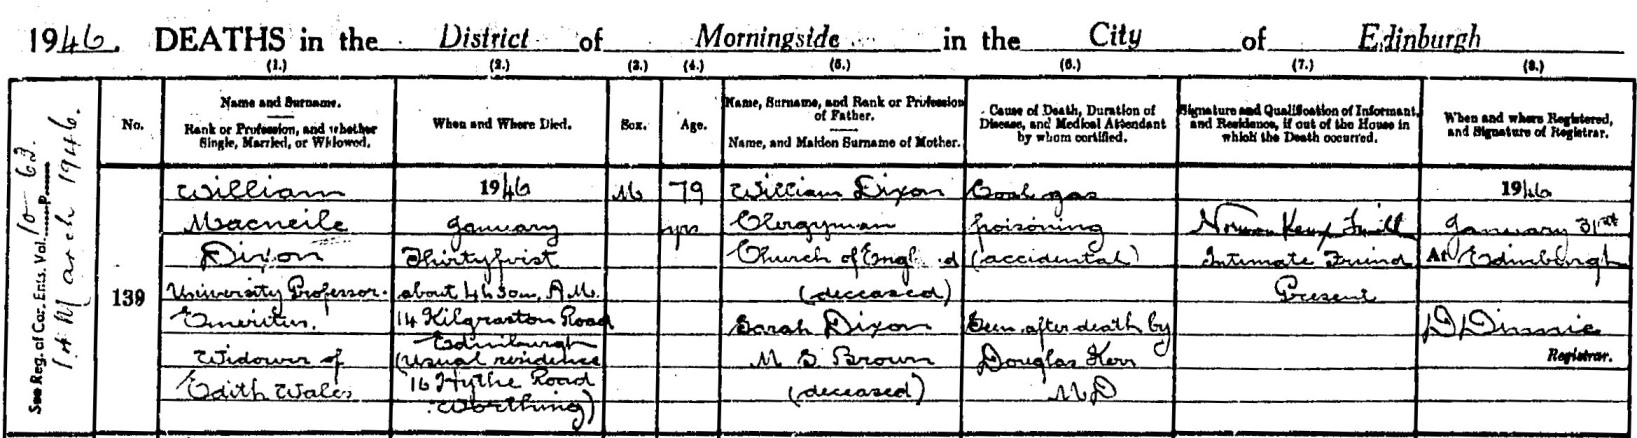 1946. DEATHS in the District of Morningside in the City of Edinburgh
(1.) (2.) (3.) (4.) (5.) (6.) (7.) (8.)
See Reg. of Cor. Ents. Vol. 10 P. 62.
14 March 1946.
No.
Name and Surname.
Rank or Profession, and whether
Single, Married, or Widowed.
When and Where Died.
Sex.
Age.
Name, Surname, and Rank or Profession
of Father.
Name, and Maiden Surname of Mother.
Cause of Death, Duration of
Disease, and Medical Attendant
by whom certified.
Signature and Qualification of Informant,
and Residence, if out of the House in
which the Death occurred.
When and where Registered,
and Signature of Registrar.
139
William
Macneile
Dixon
University Professor.
Emeritus.
Widower of
Edith Wales
1946
January
Thirtyfirst
about 4h 30m. A.M.
14 Kilgraston Road
Edinburgh
(usual residence
16 Hythe Road
Worthing)
M
79
yrs
William Dixon
Clergyman
Church of Engl d
(deceased)
Sarah Dixon
M. S. Brown
(deceased)
Coal gas
poisoning
(accidental)
Seen after death by
Douglas Kerr
M D
Norman Smith
Intimate Friend
Present
1946
January 31st
At Edinburgh
Registrar.